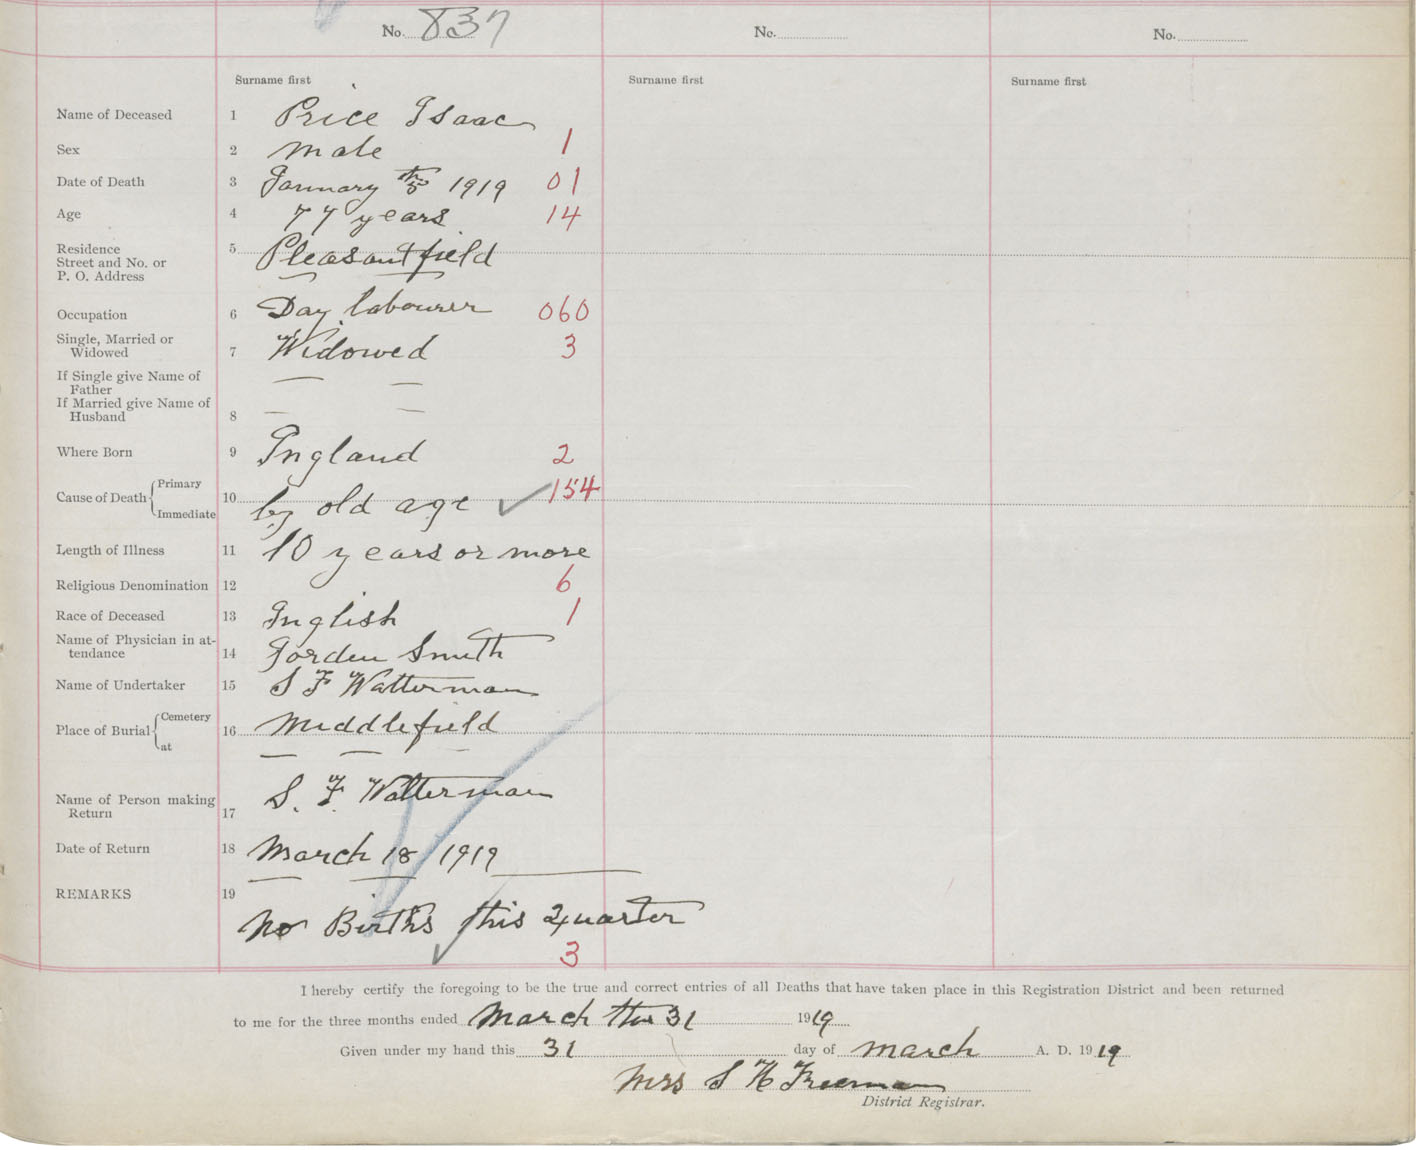 No. 837 No. No.
Surname first Surname first Surname first
Name of Deceased 1 Price Isaac
Sex 2 Male 1
Date of Death 3 January th 5 1919 01
Age 4 77 years 14
Residence
Street and No. or
P. O. Address
5 Pleasantfield
Occupation 6 Day labourer 060
Single, Married or
Widowed 7 Widowed 3
If Single give Name of
Father
If Married give Name of
Husband 8
Where Born 9 England 2
Cause of Death { Primary
Immediate
10 by old age ✓ 154
Length of Illness 11 10 years or more
Religious Denomination 12 6
Race of Deceased 13 English 1
Name of Physician in at-
tendance 14 Gorden Smith
Name of Undertaker 15 S F Watterman
Place of Burial { Cemetery
at
16 Middlefield
Name of Person making
Return 17 S. F. Watterman
Date of Return 18 March 18 1919
REMARKS 19
No Births this Quarter
3
I hereby certify the foregoing to be the true and correct entries of all Deaths that have taken place in this Registration District and been returned
to me for the three months ended March the 31 1919
Given under my hand this 31 day of March A. D. 1919
Mrs S H Freeman
District Registrar.